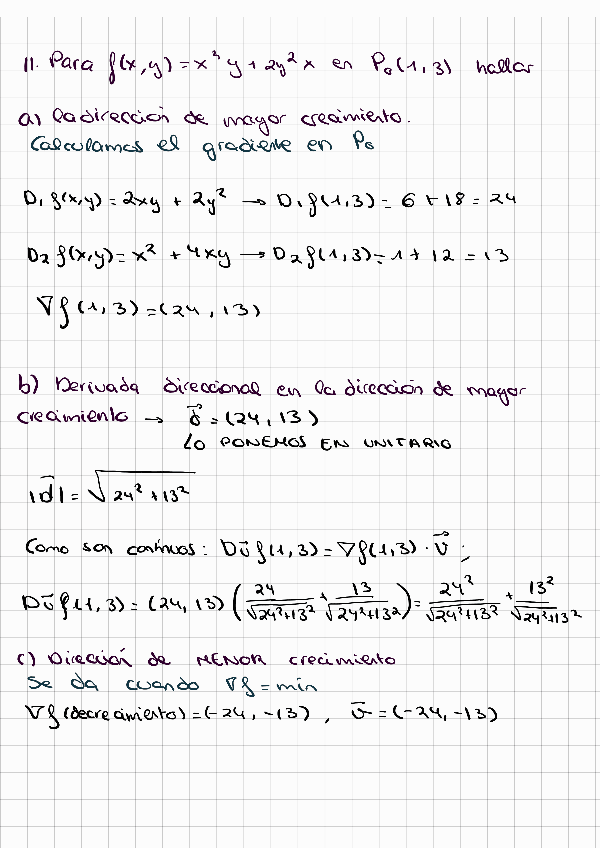 11. Para f(x,y) = x³y + 2y²x en P₀(1,3) hallar
a) La dirección de mayor crecimiento.
Calculamos el gradiente en P₀
D₁ f(x,y) = 2xy + 2y² → D₁ f(1,3) = 6 + 18 = 24
D₂ f(x,y) = x² + 4xy → D₂ f(1,3) = 1 + 12 = 13
∇f(1,3) = (24, 13)
b) Derivada direccional en la dirección de mayor
crecimiento → d⃗ = (24, 13)
LO PONEMOS EN UNITARIO
|d⃗| = √(24² + 13²)
Como son continuas: Dv⃗ f(1,3) = ∇f(1,3) · v⃗ ;
Dv⃗ f(1,3) = (24, 13) (24/√(24²+13²) + 13/√(24²+13²)) = 24²/√(24²+13²) + 13²/√(24²+13²)
c) Dirección de MENOR crecimiento
Se da cuando ∇f = mín
∇f(decrecimiento) = (-24, -13) , v⃗ = (-24, -13)